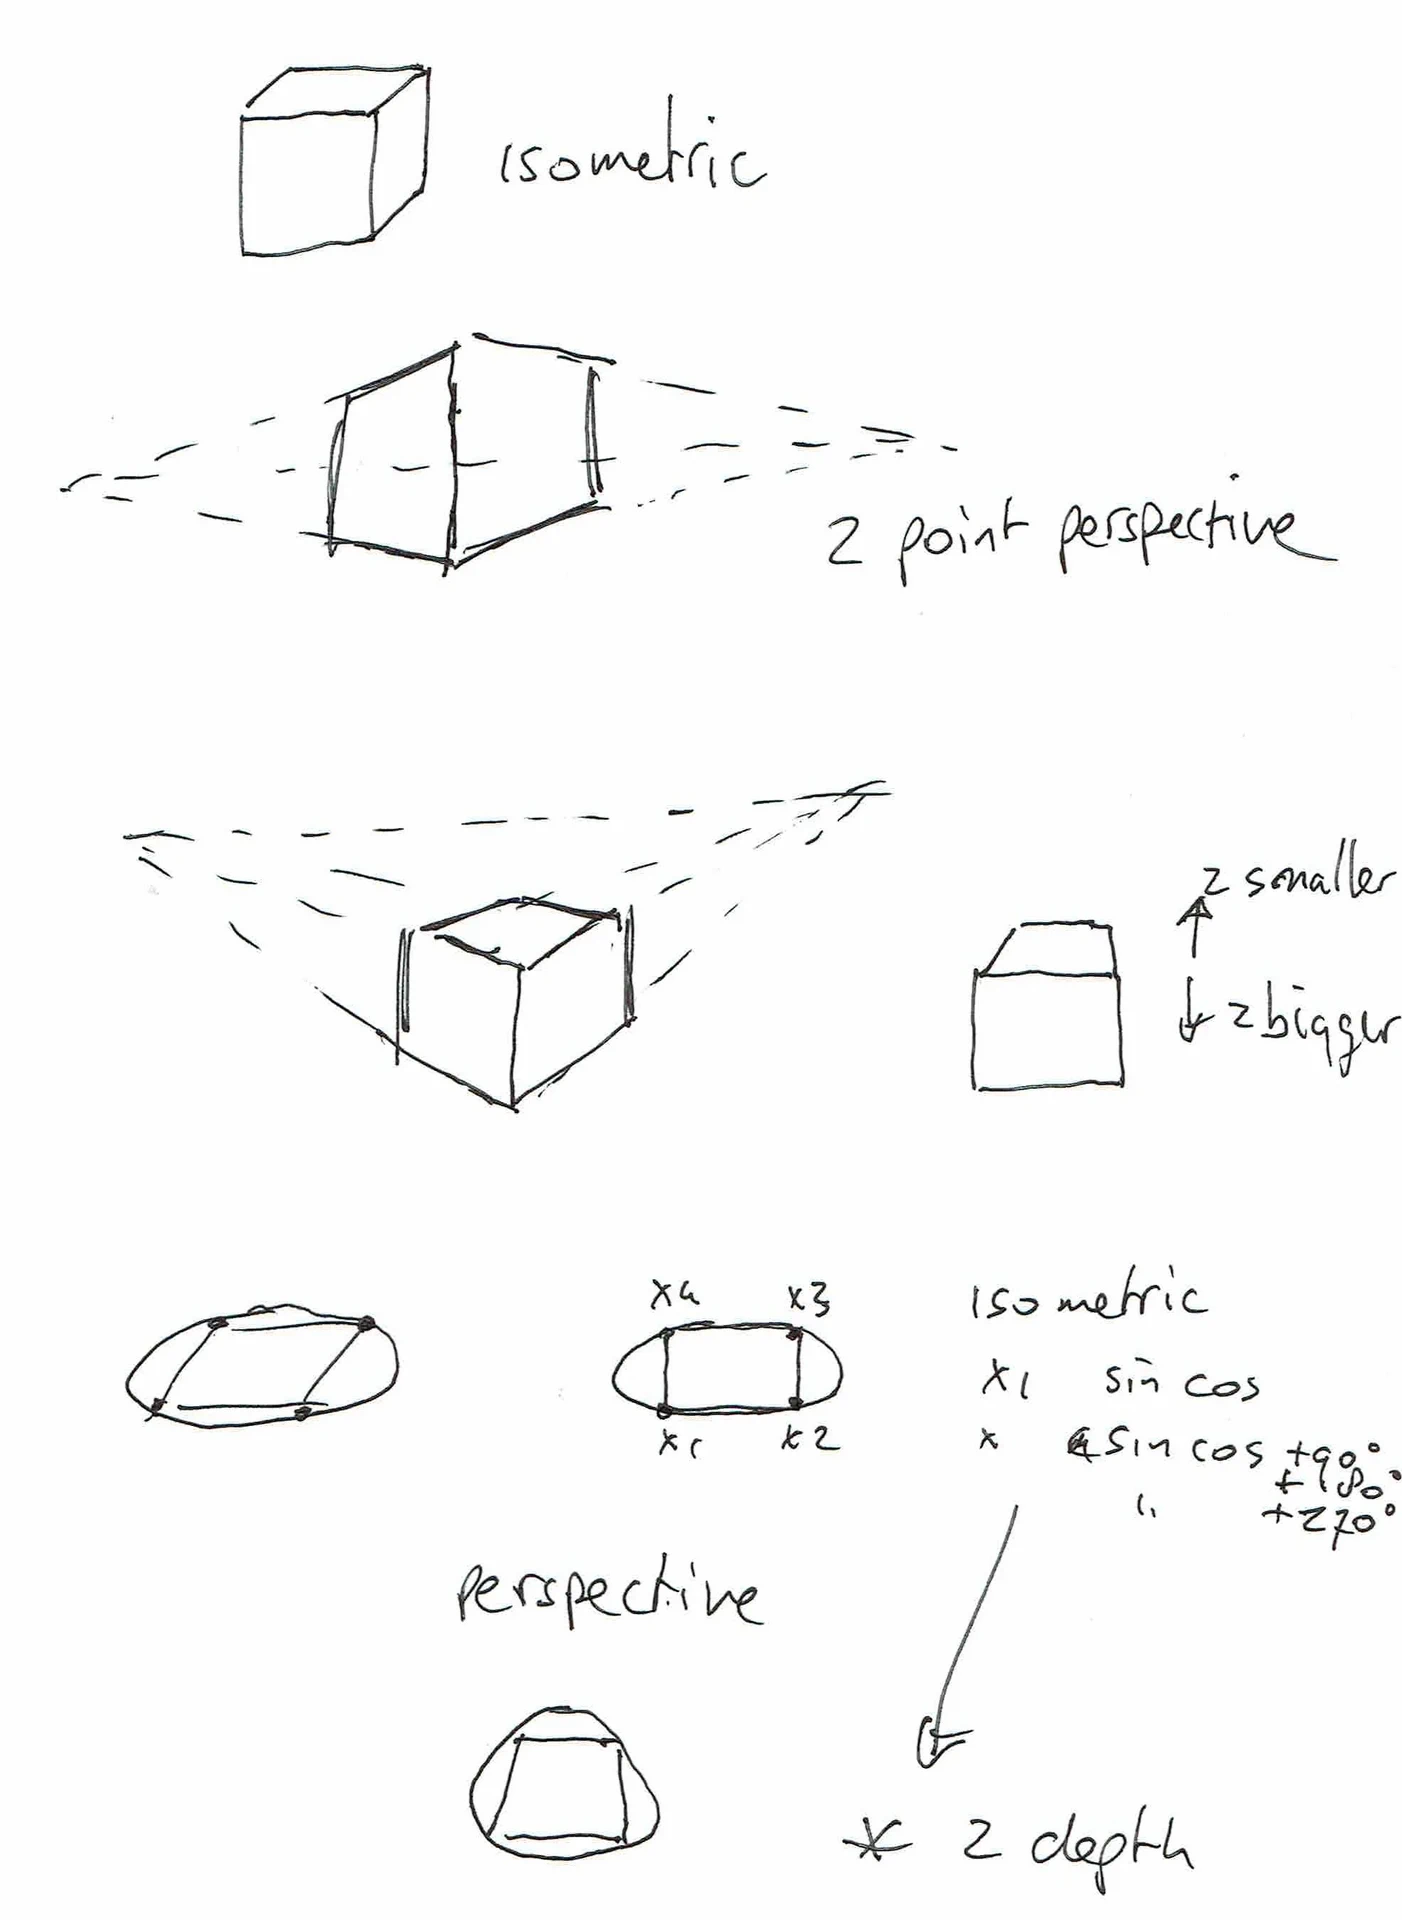 isometric
2 point perspective
z smaller
z bigger
x4 x3
x1 x2
isometric
x1 sin cos
x sin cos +90°
+180°
" +270°
perspective
* z depth